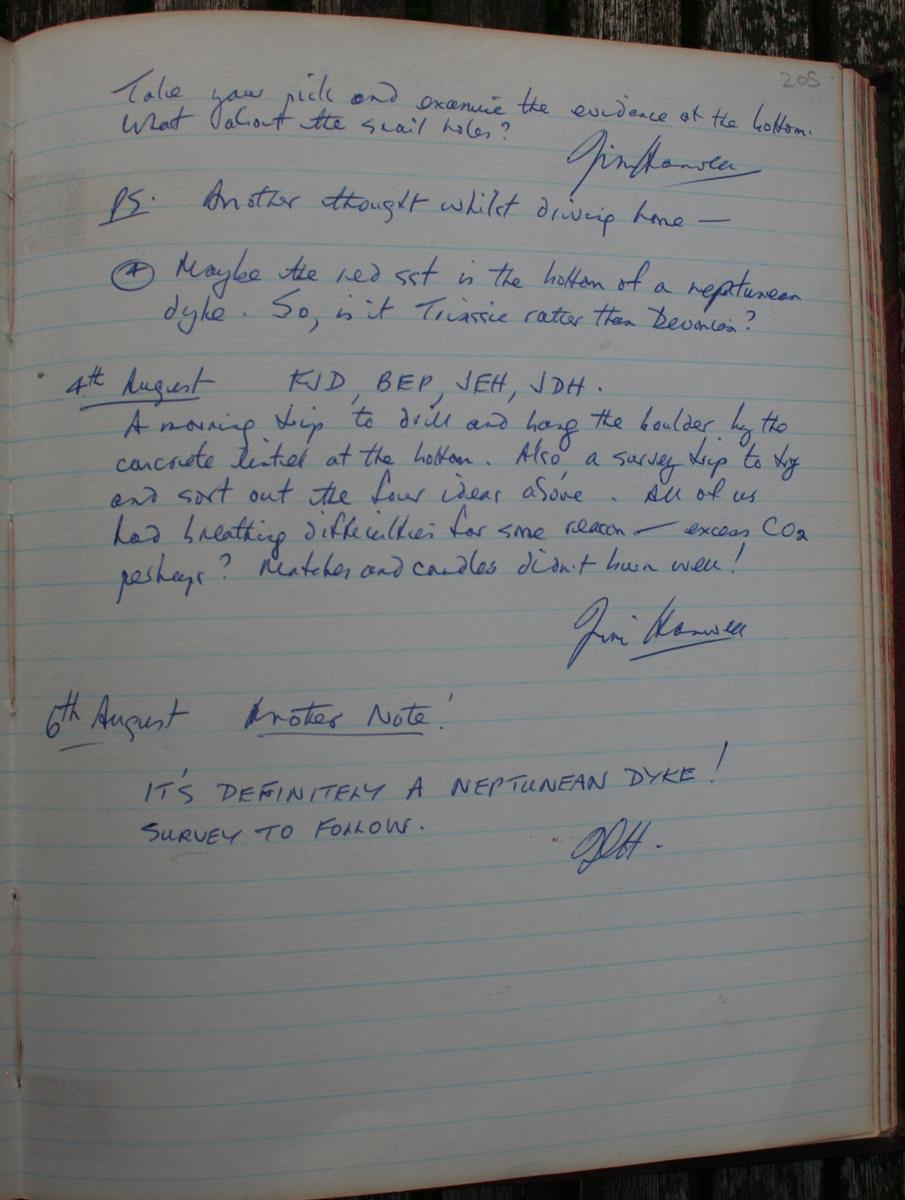 205
Take your pick and examine the evidence at the bottom.
What about the snail holes?
Jim Hanwell
PS. Another thought whilst driving home —
④ Maybe the red sst is the bottom of a neptunean
dyke. So, is it Triassic rather than Devonian?
4th August KJD, BEP, JEH, JDH.
A morning trip to drill and bang the boulder by the
concrete lintel at the bottom. Also, a survey trip to try
and sort out the four ideas above. All of us
had breathing difficulties for some reason — excess CO2
perhaps? Matches and candles didn't burn well!
Jim Hanwell
6th August Another Note!
IT'S DEFINITELY A NEPTUNEAN DYKE!
SURVEY TO FOLLOW.
JDH.